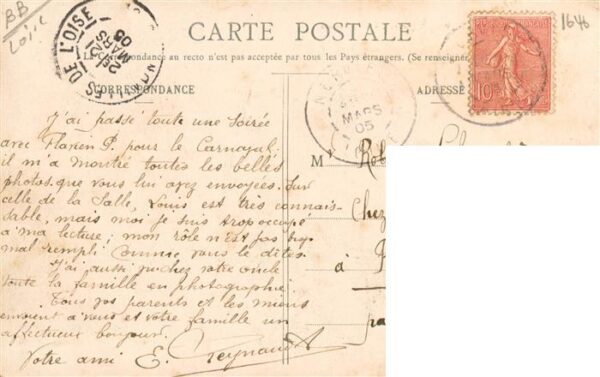 BB
Loire
1646
CARTE POSTALE
La Correspondance au recto n'est pas acceptée par tous les Pays étrangers. (Se renseigner
CORRESPONDANCE
ADRESSE
LES DE L'OISE
MARS
05
MARS
05
10
J'ai passé toute une soirée
avec Flavien P. pour le Carnaval.
il m'a montré toutes les belles
photos que vous lui avez envoyées. Sur
celle de la Salle, Louis est très connais-
sable, mais moi je suis trop occupé
a ma lecture; mon rôle n'est pas trop
mal rempli comme vous le dites.
J'ai aussi vu chez votre oncle
toute la famille en photographie.
Tous vos parents et les miens
envoient a vous et votre famille un
affectueux bonjour.
Votre ami E. Peynaud
M
Chez
à